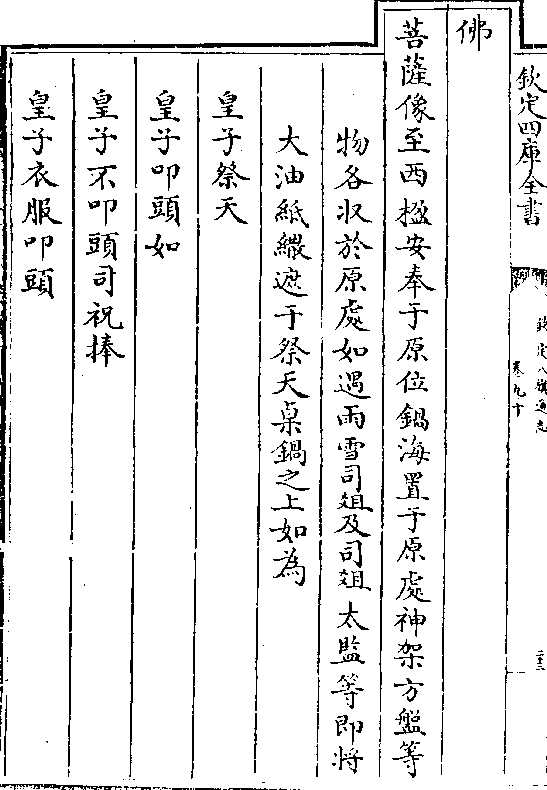 欽定四庫全書
欽定八旗通志
卷九十
二十二
佛
菩薩像至西楹安奉于原位鍋海置于原處神架方盤等
物各收於原處如遇雨雪司俎及司俎太監等即將
大油紙繖遮于祭天桌鍋之上如為
皇子祭天
皇子叩頭如
皇子不叩頭司祝捧
皇子衣服叩頭